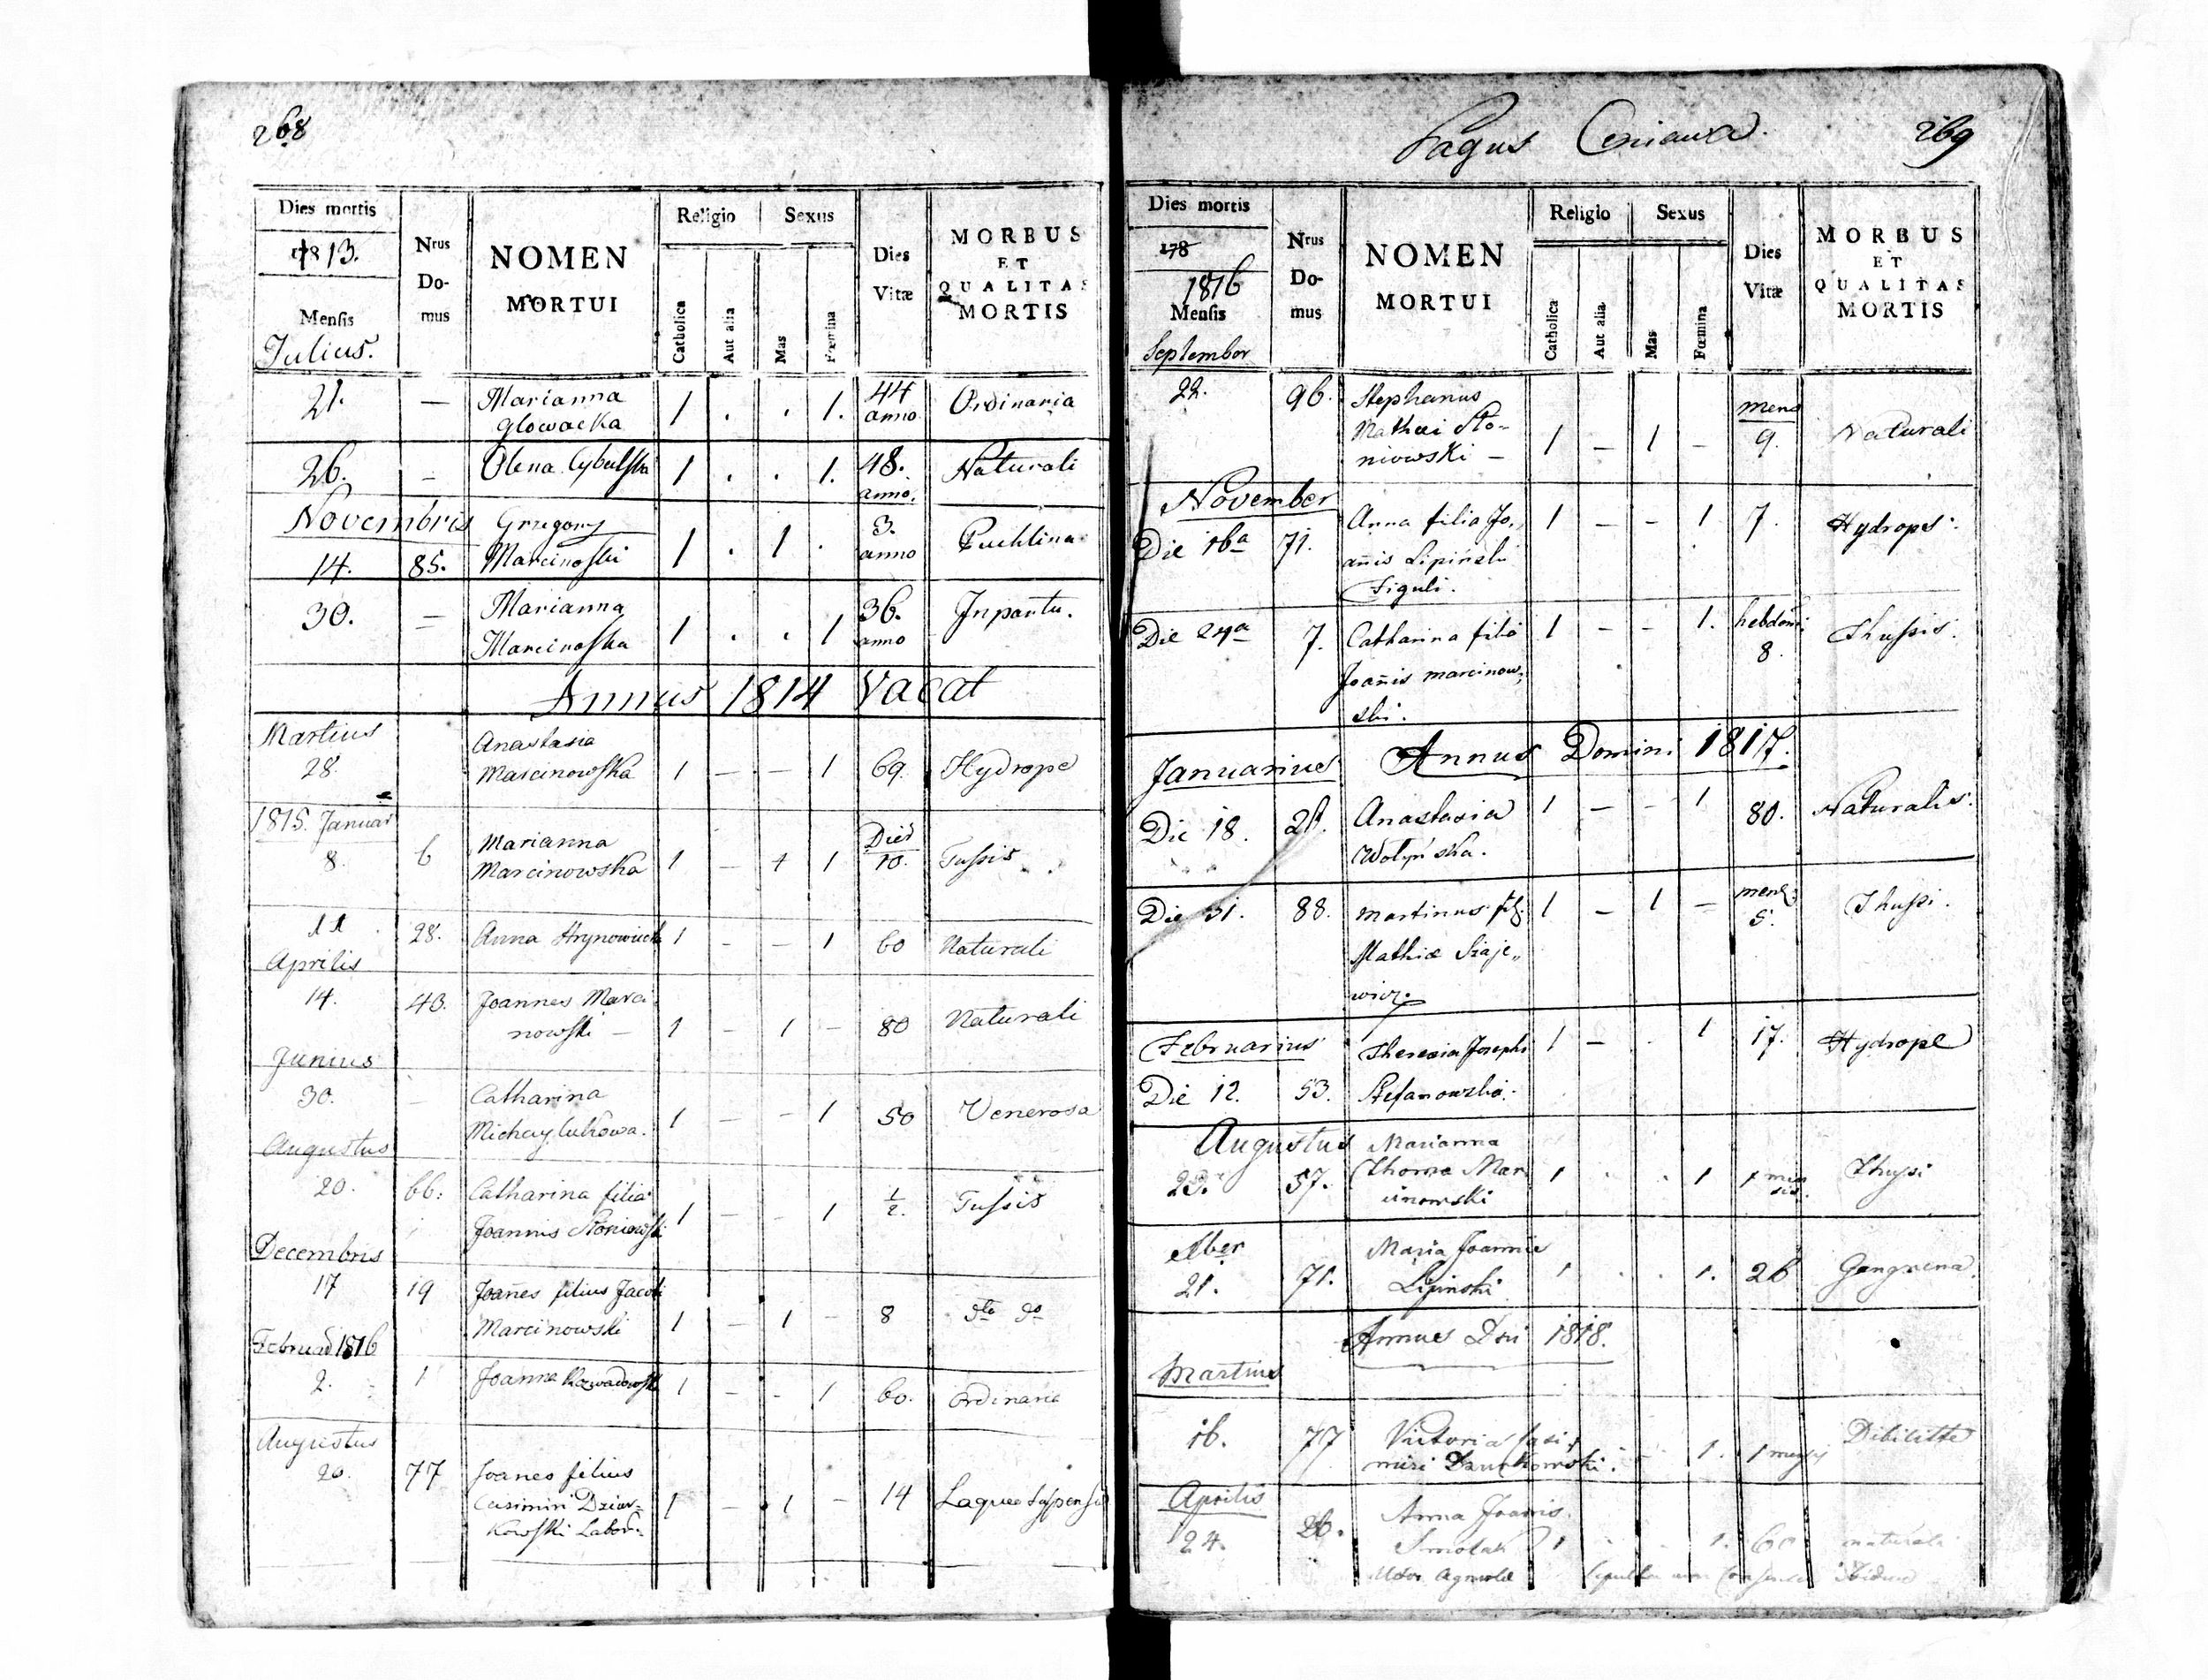 268
Dies mortis
1813.
Mensis
Julius.
Nrus
Do-
mus
NOMEN
MORTUI
Religio
Sexus
Catholica
Aut alia
Mas
Fœmina
Dies
Vitæ
MORBUS
ET
QUALITAS
MORTIS
21. — Marianna Glowacka 1 . . 1. 44 anno Ordinaria
26. - Olena Cybulska 1 . . 1. 48. anno. Naturali
Novembris
14. 85. Grzegorz Marcinoski 1 . 1 . 3. anno Puchlina
30. = Marianna Marcinoska 1 . . 1 36. anno Inpartu.
Annus 1814 Vacat
Martius
28. Anastasia Marcinowska 1 — — 1 69. Hydrope
1815. Januar
8. 6 Marianna Marcinowska 1 — 1 Dies 10. Tussis
11. 28. Anna Hrynowiecka 1 - - 1 60 Naturali
Aprilis
14. 43. Joannes Marcinowski — 1 - 1 - 80 Naturali
Junius
30. Catharina Michaylukowa. 1 - - 1 50 Venerosa
Augustus
20. 66. Catharina filia Joannis Stoniowski 1 - - 1 1/2. Tussis
Decembris
17 19 Joañes filius Jacobi Marcinowski 1 - 1 - 8 dto do
Februar 1816
2. 1 Joanna 1 - - 1 60. Ordinaria
Augustus
20. 77 Joanes filius Casimiri Dziurkowski Labor. 1 - 1 - 14 Laqueo suspensus
Pagus Ceniawa.
269
Dies mortis
178
1816
Mensis
September
Nrus
Do-
mus
NOMEN
MORTUI
Religio
Sexus
Catholica
Aut alia
Mas
Fœmina
Dies
Vitæ
MORBUS
ET
QUALITAS
MORTIS
22. 96. Stephanus Mathæi Stoniowski — 1 — 1 — mens 9. Naturali
November
Die 16a 71. Anna filia Joañis Lipinski Figuli. 1 — - 1 7. Hydrops.
Die 24a 7. Catharina filia Joañis Marcinowski. 1 - - 1. hebdom. 8. Thussis.
Annus Domini 1817.
Januarius
Die 18. 21. Anastasia Wołyńska. 1 — - 1 80. Naturalis.
Die 31. 88. Martinus fil. Mathiæ 1 — 1 — mens. 5. Thussi.
Februarius
Die 12. 53. Theresia Josephi Stefanowska. 1 — . 1 17. Hydrope
Augustus
23. 57. Marianna Thoma Marcinowski 1 . . 1 1 mensis. Thussi
21. 71. Maria Joannis Lipinski 1 . . 1. 26 Gangrena.
Annus Dni 1818.
Martius
16. 77 Victoria Casimiri 1. 1 Dibilitte
Aprilis
24. 26. Anna Joannis Smolak 1 . . 1. 60 naturali